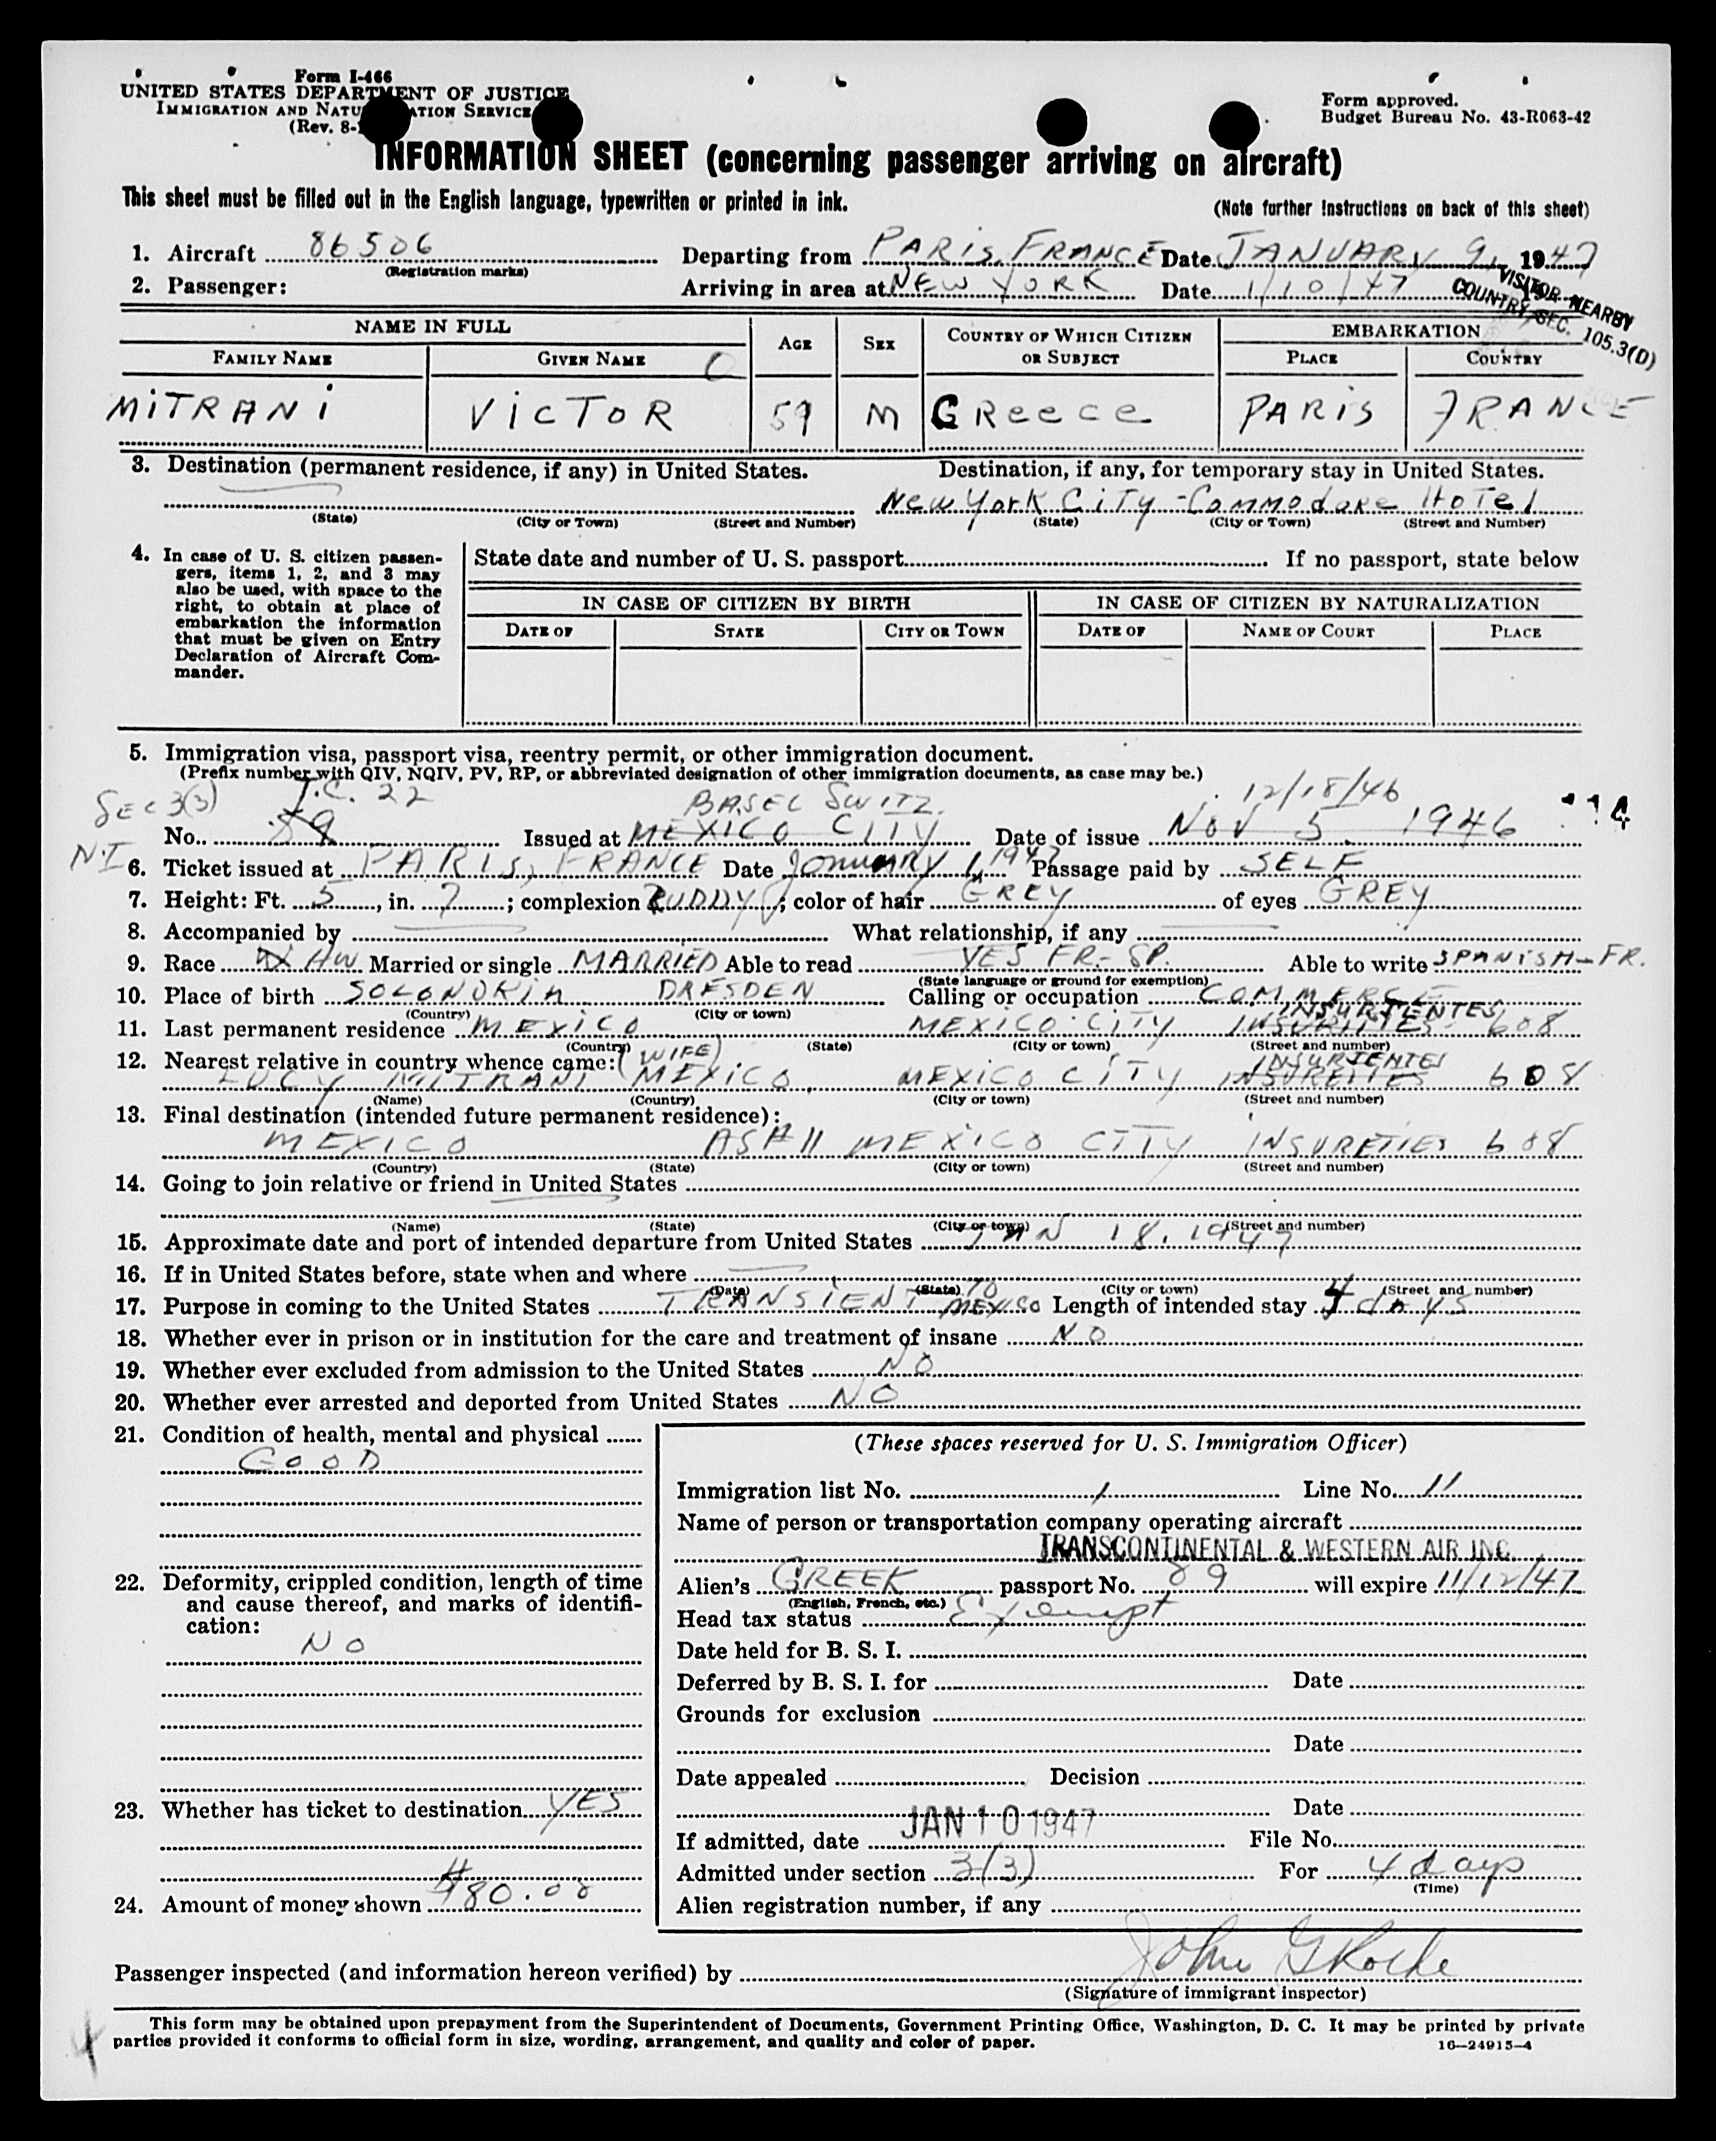 Form I-466
UNITED STATES DEPARTMENT OF JUSTICE
IMMIGRATION AND NATURALIZATION SERVICE
(Rev. 8-
Form approved.
Budget Bureau No. 43-R063-42
INFORMATION SHEET (concerning passenger arriving on aircraft)
This sheet must be filled out in the English language, typewritten or printed in ink.
(Note further instructions on back of this sheet)
1. Aircraft 86506 Departing from PARIS, FRANCE Date JANUARY 9, 1947
(Registration marks)
2. Passenger: Arriving in area at NEW YORK Date 1/10/47
VISITOR NEARBY
COUNTRY SEC. 105.3(D)
NAME IN FULL AGE SEX COUNTRY OF WHICH CITIZEN OR SUBJECT EMBARKATION
FAMILY NAME GIVEN NAME PLACE COUNTRY
MITRANI VICTOR 59 M GREECE PARIS FRANCE
3. Destination (permanent residence, if any) in United States. Destination, if any, for temporary stay in United States.
New York City - Commodore Hotel
(State) (City or Town) (Street and Number) (State) (City or Town) (Street and Number)
4. In case of U. S. citizen passen-
gers, items 1, 2, and 3 may
also be used, with space to the
right, to obtain at place of
embarkation the information
that must be given on Entry
Declaration of Aircraft Com-
mander.
State date and number of U. S. passport If no passport, state below
IN CASE OF CITIZEN BY BIRTH IN CASE OF CITIZEN BY NATURALIZATION
DATE OF STATE CITY OR TOWN DATE OF NAME OF COURT PLACE
5. Immigration visa, passport visa, reentry permit, or other immigration document.
(Prefix number with QIV, NQIV, PV, RP, or abbreviated designation of other immigration documents, as case may be.)
SEC 3(3) T.C. 22 BASEL SWITZ. 12/18/46
No. 89 Issued at MEXICO CITY Date of issue NOV 5. 1946
N.I 6. Ticket issued at PARIS, FRANCE Date January 1, 1947 Passage paid by SELF
7. Height: Ft. 5, in. 7; complexion RUDDY; color of hair GREY of eyes GREY
8. Accompanied by What relationship, if any
9. Race HW Married or single MARRIED Able to read YES FR.- SP. Able to write SPANISH-FR.
(State language or ground for exemption)
10. Place of birth SOLONOKIA DRESDEN Calling or occupation COMMERCE
(Country) (City or town)
INSURTENTES
11. Last permanent residence MEXICO MEXICO CITY 608
(Country) (State) (City or town) (Street and number)
12. Nearest relative in country whence came: (WIFE) INSURIENTES
LUCY MITRANI MEXICO, MEXICO CITY 608
(Name) (Country) (City or town) (Street and number)
13. Final destination (intended future permanent residence):
MEXICO AS#11 MEXICO CITY INSURETIES 608
(Country) (State) (City or town) (Street and number)
14. Going to join relative or friend in United States
(Name) (State) (City or town) (Street and number)
15. Approximate date and port of intended departure from United States JAN 18. 1947
16. If in United States before, state when and where
(Date) (State) (City or town) (Street and number)
17. Purpose in coming to the United States TRANSIENT TO MEXICO Length of intended stay 4 days
18. Whether ever in prison or in institution for the care and treatment of insane NO
19. Whether ever excluded from admission to the United States NO
20. Whether ever arrested and deported from United States NO
21. Condition of health, mental and physical
GOOD
22. Deformity, crippled condition, length of time
and cause thereof, and marks of identifi-
cation:
NO
23. Whether has ticket to destination YES
24. Amount of money shown $80.00
(These spaces reserved for U. S. Immigration Officer)
Immigration list No. 1 Line No. 11
Name of person or transportation company operating aircraft
TRANSCONTINENTAL & WESTERN AIR INC.
Alien's GREEK passport No. 89 will expire 11/12/47
(English, French, etc.)
Head tax status Exempt
Date held for B. S. I.
Deferred by B. S. I. for Date
Grounds for exclusion
Date
Date appealed Decision
Date
If admitted, date JAN 10 1947 File No.
Admitted under section 3(3) For 4 days
(Time)
Alien registration number, if any
Passenger inspected (and information hereon verified) by John G Roche
(Signature of immigrant inspector)
This form may be obtained upon prepayment from the Superintendent of Documents, Government Printing Office, Washington, D. C. It may be printed by private
parties provided it conforms to official form in size, wording, arrangement, and quality and color of paper.
16—24915-4